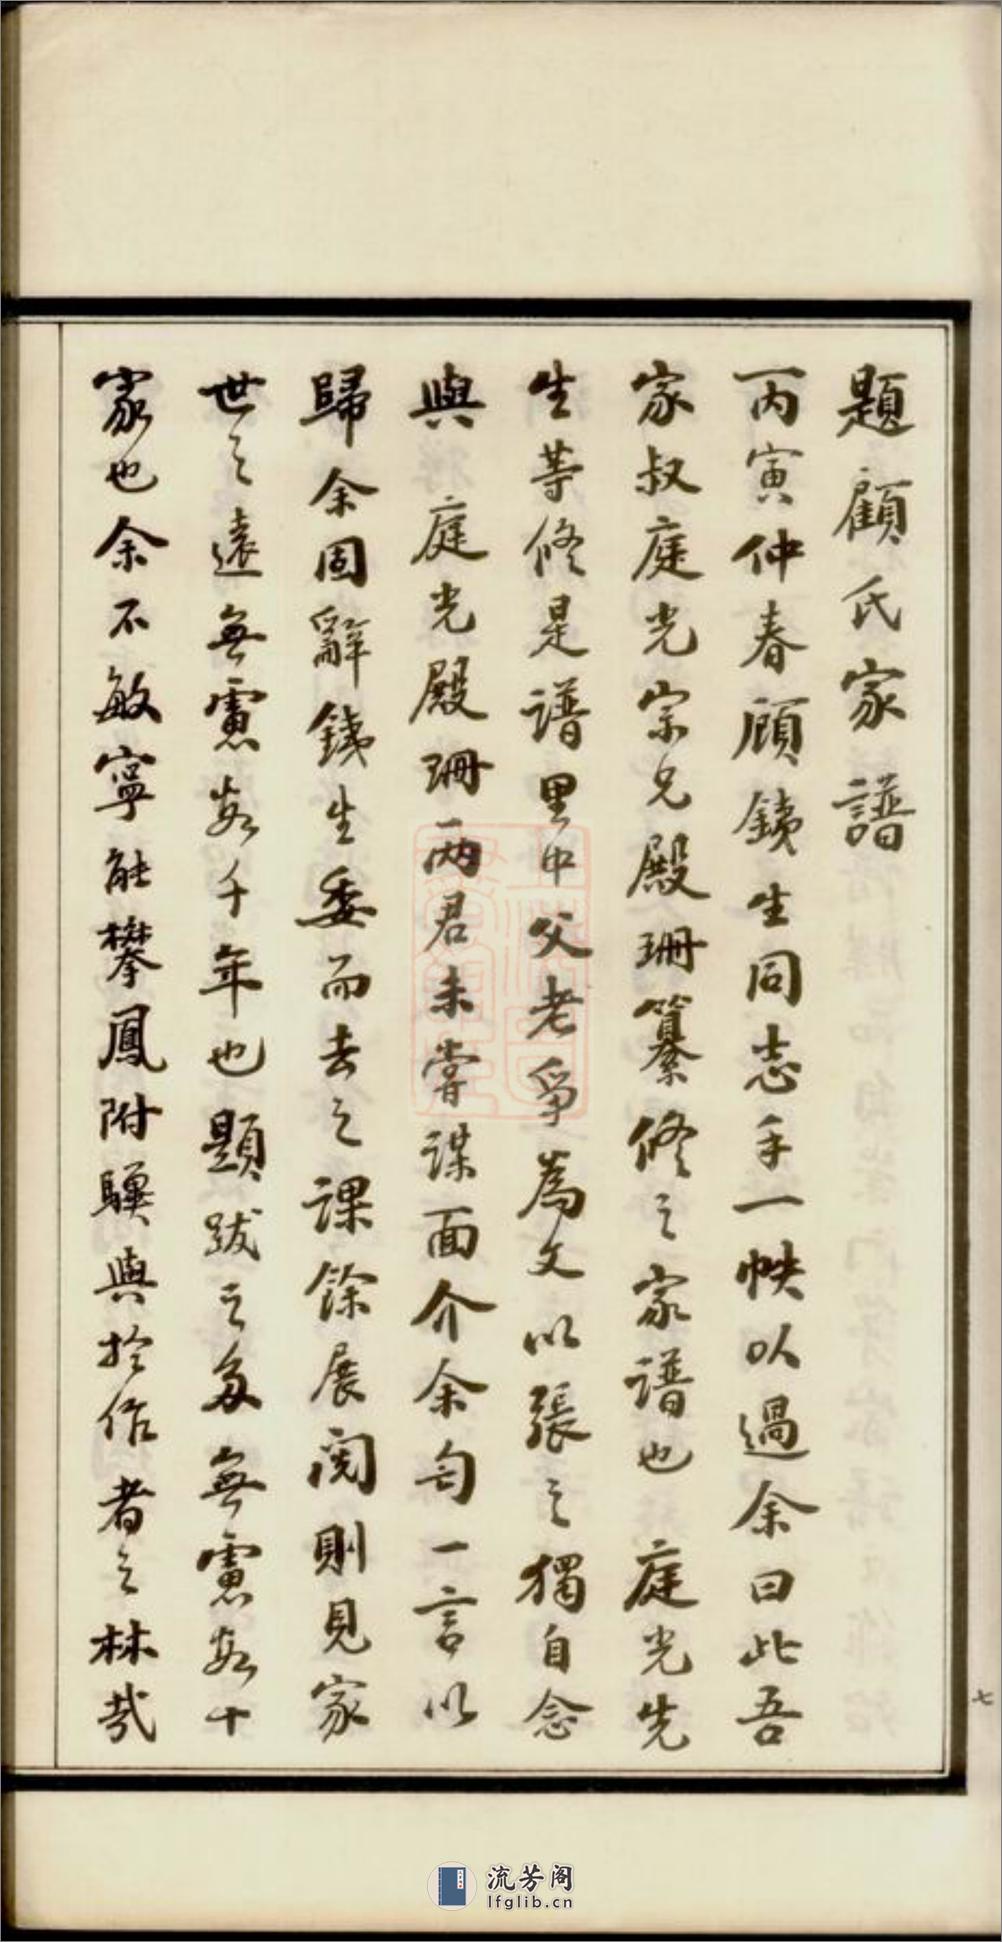 題顧氏家譜
丙寅仲春顧銕生同志手一帙以過余曰此吾
家叔庭光宗兄殿珊纂修之家譜也 庭光先
生等修是譜里中父老爭為文以張之獨自念
與 庭光殿珊兩君未嘗謀面介余匄一言以
歸余固辭銕生委而去之課餘展閱則見家
世之遠無慮數千年也題跋之多無慮數十
家也余不敏寧能攀鳳附驥與於作者之林哉
七
流芳阁
lfglib.cn